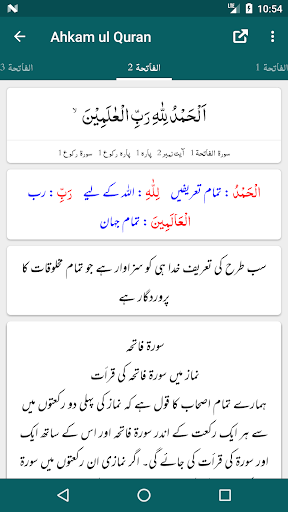 10:54
Ahkam ul Quran
الفاتحة 1
الفاتحة 2
الفاتحة 3
اَلْحَمْدُ لِلّٰهِ رَبِّ الْعٰلَمِیْنَ ۙ
سورۃ الفاتحة 1 آیت نمبر 2 پارہ 1 پارہ رکوع 1 سورۃ رکوع 1
الْحَمْدُ : تمام تعریفیں لِلّٰهِ : اللہ کے لیے رَبِّ : رب
الْعَالَمِينَ : تمام جہان
سب طرح کی تعریف خدا ہی کو سزاوار ہے جو تمام مخلوقات کا
پروردگار ہے
سورۃ فاتحہ
نماز میں سورۃ فاتحہ کی قرأت
ہمارے تمام اصحاب کا قول ہے کہ نماز کی پہلی دو رکعتوں میں
سے ہر ایک رکعت کے اندر سورۃ فاتحہ اور اس کے ساتھ ایک
اور سورۃ کی قرأت کی جائے گی۔ اگر نمازی ان رکعتوں میں سورۃ